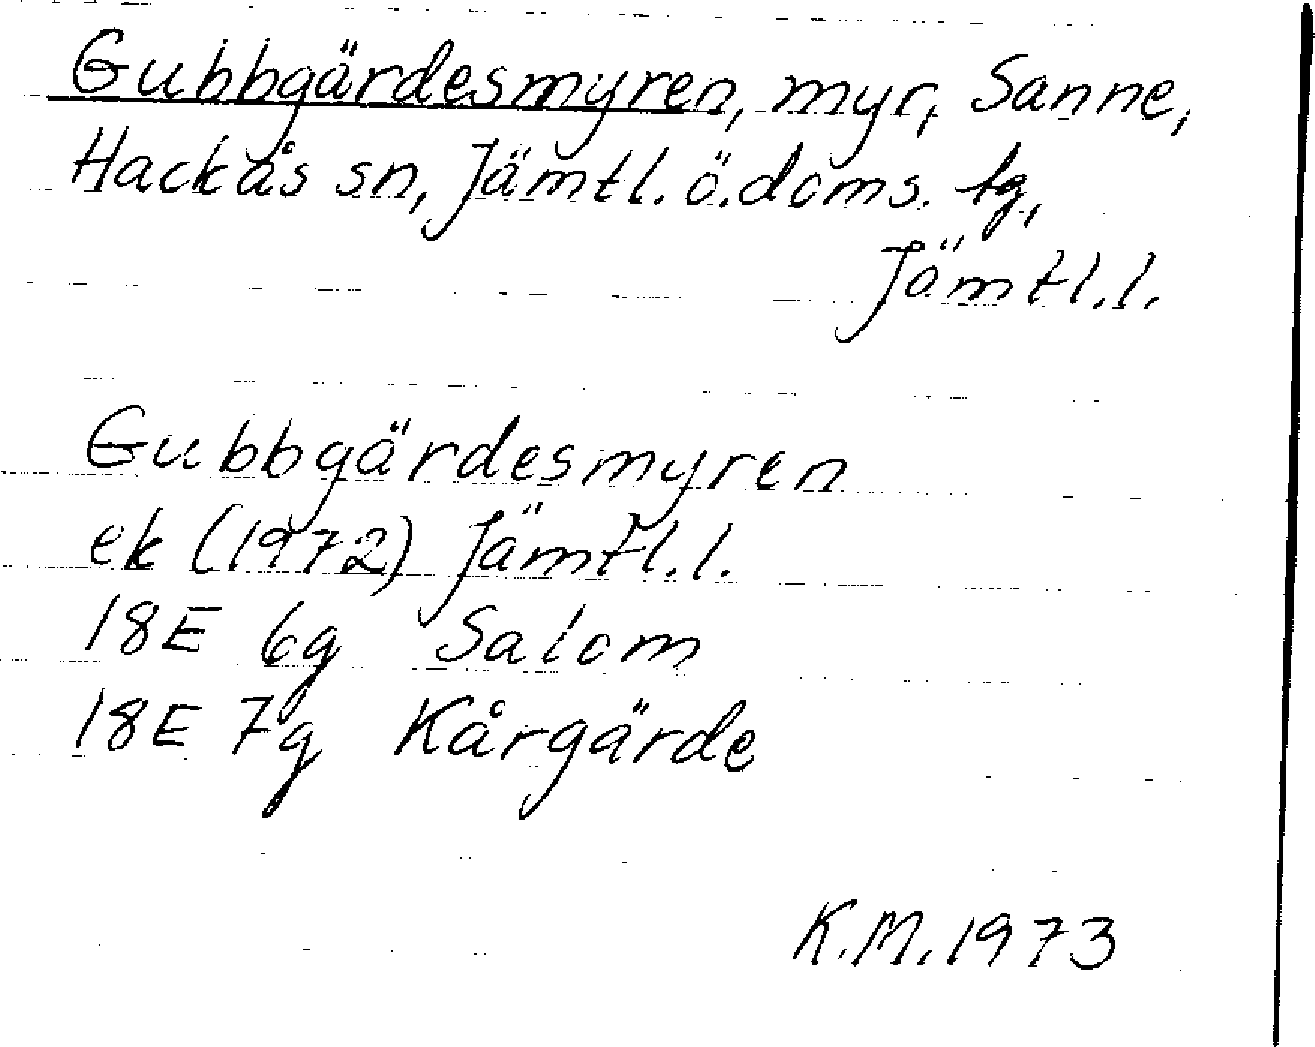 Gubbgärdesmyren, myr, Sanne,
Hackås sn, Jämtl. ö. doms. tg,
Jämtl. l.
Gubbgärdesmyren
ek (1972) Jämtl. l.
18E 6g Salom
18E 7g Kårgärde
K.M. 1973